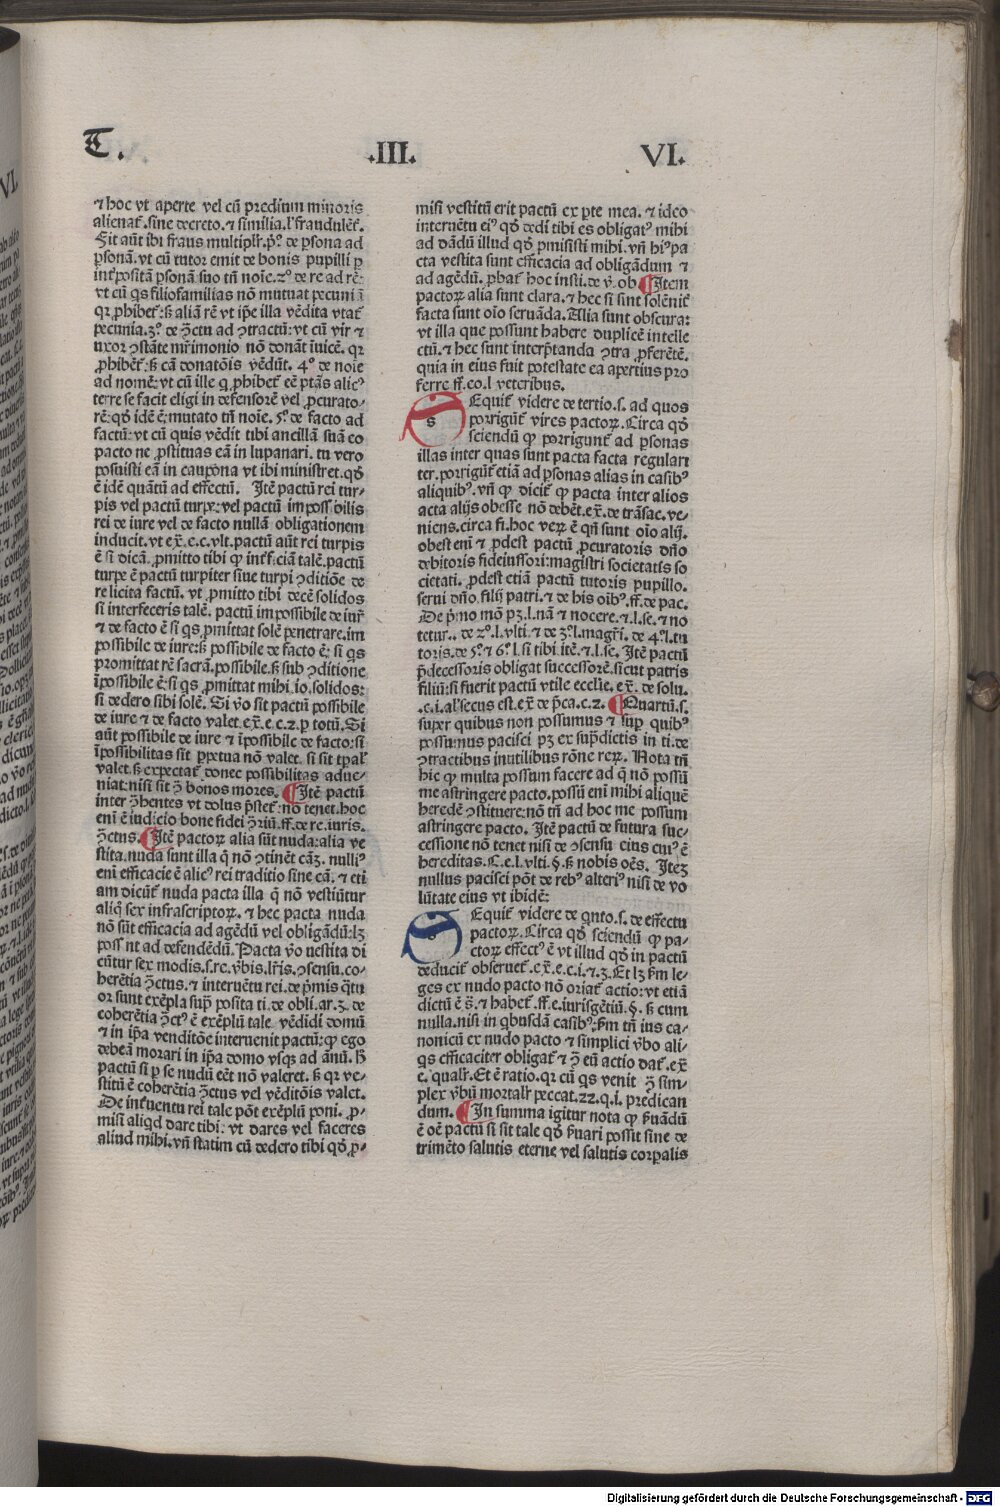 T. .III. VI.
⁊ hoc vt aperte vel cũ predium minoris
alienat᷑.sine decreto.⁊ similia.l᷑ fraudulẽt᷑.
Fit aũt ibi fraus multiplr̃.p̃.º de ꝑsona ad
ꝑsonã.vt cũ tutor emit de bonis pupilli ꝑ
int᷑positã ꝑsonã suo tñ noĩe.2º de re ad rẽ:
vt cũ q̃s filiofamilias nõ mutuat pecuniã
qꝛ ꝓhibet᷑:ß aliã rẽ vt ip̃e illa vẽdita vtat᷑
pecunia.3º.de ꝯ̃ctu ad ꝯtractũ:vt cũ vir ⁊
vxor ꝯstãte mr̃imonio nõ donãt ĩuicẽ.qꝛ
ꝓhibẽt᷑:ß cã donatõis vẽdũt. 4º de noĩe
ad nomẽ:vt cũ ille q̃ ꝓhibet᷑ eẽ ptãs alicꝰ
terre se facit eligi in defensorẽ vel ꝓcurato⸗
rẽ:qđ idẽ ẽ:mutato tñ noĩe.5º.de facto ad
factũ:vt cũ quis vẽdit tibi ancillã suã eo
pacto ne ꝓstituas eã in lupanari.tu vero
posuisti eã in caupona vt ibi ministret.qđ
ẽ idẽ quãtũ ad effectũ. Itẽ pactũ rei tur⸗
pis vel pactũ turpe:vel pactũ impossibilis
rei de iure vel de facto nullã obligationem
inducit.vt ex̃.e.c.vlt.pactũ aũt rei turpis
ẽ si dicã.ꝓmitto tibi ꝙ int᷑ficiã talẽ.pactũ
turpe ẽ pactũ turpiter siue turpi ꝯditiõe de
re licita factũ.vt ꝓmitto tibi decẽ solidos
si interfeceris talẽ. pactũ impossibile de iur̃
⁊ de facto ẽ si q̃s ꝓmittat solẽ penetrare.im
possibile de iure:ß possibile de facto ẽ: si q̃s
promittat rẽ sacrã.possibile.ß sub ꝯditione
ĩpossibile ẽ:si q̃s ꝓmittat mihi .io.solidos:
si dedero sibi solẽ. Si ṽo sit pactũ possibile
de iure ⁊ de facto valet.ex̃.e.c.2.ꝑ totũ.Si
aũt possibile de iure ⁊ ĩpossibile de facto:si
ĩpossibilitas sit ꝑpetua nõ valet. si sit tꝑal᷑
valet.ß expectat᷑ donec possibilitas adue⸗
niat:nisi sit ꝯ̃ bonos mores. Itẽ pactũ
inter ꝯ̃hentes vt dolus p̃stet᷑:nõ tenet.hoc
eni ẽ iudicio bone fidei ꝯ̃riũ.ff.de re.iuris.
ꝯ̃ctus. Itẽ pactoꝝ alia sũt nuda:alia ve
stita.nuda sunt illa q̃ nõ ꝯtinẽt cãʒ. nulliꝰ
eni efficacie ẽ alicꝰ rei traditio sine cã. ⁊ eti
am dicũt᷑ nuda pacta illa q̃ nõ vestiũtur
aliq̃ sex infrascriptoꝝ. ⁊ hec pacta nuda
nõ sũt efficacia ad agẽdũ vel obligãdũ:lʒ
possint ad defendẽdũ. Pacta ṽo uestita di
cũtur sex modis.s.re.ṽbis.lr̃is.ꝯsensu.co⸗
herẽtia ꝯ̃ctus.⁊ interuẽtu rei.de p̃mis q̃tu
or sunt exẽpla sup̃ posita ti.de obli.ar.3. de
coherẽtia ꝯ̃ctꝰ ẽ exẽplũ tale. vẽdidi domũ
⁊ in ip̃a venditõe interuenit pactũ:ꝙ ego
debeã morari in ip̃a domo vsqꝫ ad ãnũ.ħ
pactũ si ꝑ se nudũ eẽt nõ valeret. ß qꝛ ve⸗
stitũ ẽ coherẽtia ꝯ̃ctus vel vẽditõis valet.
De int᷑uentu rei tale põt exẽplũ poni. ꝓ⸗
misi aliq̃d dare tibi: vt dares vel faceres
aliud mihi.vñ statim cũ dedero tibi qđ ꝓ⸗
misi vestitũ erit pactũ ex ꝑte mea. ⁊ ideo
interuẽtu eiꝰ qđ dedi tibi es obligatꝰ mihi
ad dãdũ illud qđ ꝓmisisti mihi. vñ hiꝰ pa
cta vestita sunt efficacia ad obligãdum ⁊
ad agẽdũ. ꝓbat᷑ hoc insti.de ṽ.ob. Item
pactoꝝ alia sunt clara.⁊ hec si sint solẽnit᷑
facta sunt oĩo seruãda. Alia sunt obscura:
vt illa que possunt habere duplicẽ intelle
ctũ.⁊ hec sunt interp̃tanda ꝯtra ꝓferẽtẽ.
quia in eius fuit potestate ea apertius pro
ferre ff.co.l veteribus.
sEquit᷑ videre de tertio.s. ad quos
porrigũt᷑ vires pactoꝝ.Circa qđ
sciendũ ꝙ porrigunt᷑ ad ꝑsonas
illas inter quas sunt pacta facta regulari
ter.porrigũt᷑ etiã ad ꝑsonas alias in casibꝰ
aliquibꝰ. vñ ꝙ dicit᷑ ꝙ pacta inter alios
acta alijs obesse nõ debẽt.ex̃.de trãsac. ve⸗
niens.circa fi.hoc veꝝ ẽ qñ sunt oĩo alij.
obest eni ⁊ ꝓdest pactũ ꝓcuratoris dño
debitoris fideiussori:magistri societatis so
cietati. ꝓdest etiã pactũ tutoris pupillo.
serui dño.filij patri.⁊ de his oĩbꝰ.ff.de pac.
De p̃mo mõ pʒ.l.nã ⁊ nocere.⁊ l.se.⁊ no
tetur.. de 2º.l.vlti.⁊ de 3º.l.magr̃i. de 4º.l.tu
toris.de 5º.⁊ 6º l.si tibi itẽ.⁊.l.se. Itẽ pactũ
p̃decessoris obligat successorẽ.sicut patris
filiũ:si fuerit pactũ vtile ecclie. ex̃. de solu.
.c.i.al᷑ secus est.ex̃.de p̃ca.c.2. Quartũ.s.
super quibus non possumus ⁊ sup̃ quibꝰ
possumus pacisci pʒ ex sup̃dictis in ti.de
ꝯtractibus inutilibus rõne reꝝ. Nota tñ
hic ꝙ multa possum facere ad q̃ nõ possũ
me astringere pacto.possũ eni mihi aliquẽ
heredẽ ꝯstituere:nõ tñ ad hoc me possum
astringere pacto. Itẽ pactũ de futura suc⸗
cessione nõ tenet nisi de ꝯsensu eius cuiꝰ ẽ
hereditas.C.e.l.vlti.§.ß nobis oẽs. Iteʒ
nullus pacisci põt de rebꝰ alteriꝰ nisi de vo
lũtate eius vt ibidẽ:
sEquit᷑ videre de q̃nto.s. de effectu
pactoꝝ.Circa qđ sciendũ ꝙ pa⸗
ctoꝝ effectꝰ ẽ vt illud qđ in pactũ
deducit᷑ obseruet᷑.ex̃.e.c.i.⁊.3. Et lʒ ßm le⸗
ges ex nudo pacto nõ oriat᷑ actio:vt etiã
dictũ ẽ s̃.⁊ habet᷑.ff.e.iurisgẽtiũ.§. ß cum
nulla.nisi in q̃busdã casibꝰ:ßm tñ ius ca⸗
nonicũ ex nudo pacto ⁊ simplici ṽbo ali⸗
q̃s efficaciter obligat᷑ ⁊ ꝯ̃ eũ actio dat᷑.ex̃
e. qualr̃.Et ẽ ratio.qꝛ cũ q̃s venit ꝯ̃ sim⸗
plex ṽbũ mortalr̃ peccat.22.q.i. predican
dum. In summa igitur nota ꝙ ßuãdũ
ẽ oẽ pactũ si sit tale qđ ßuari possit sine de
trimẽto salutis eterne vel salutis corꝑalis
Digitalisierung gefördert durch die Deutsche Forschungsgemeinschaft - DFG